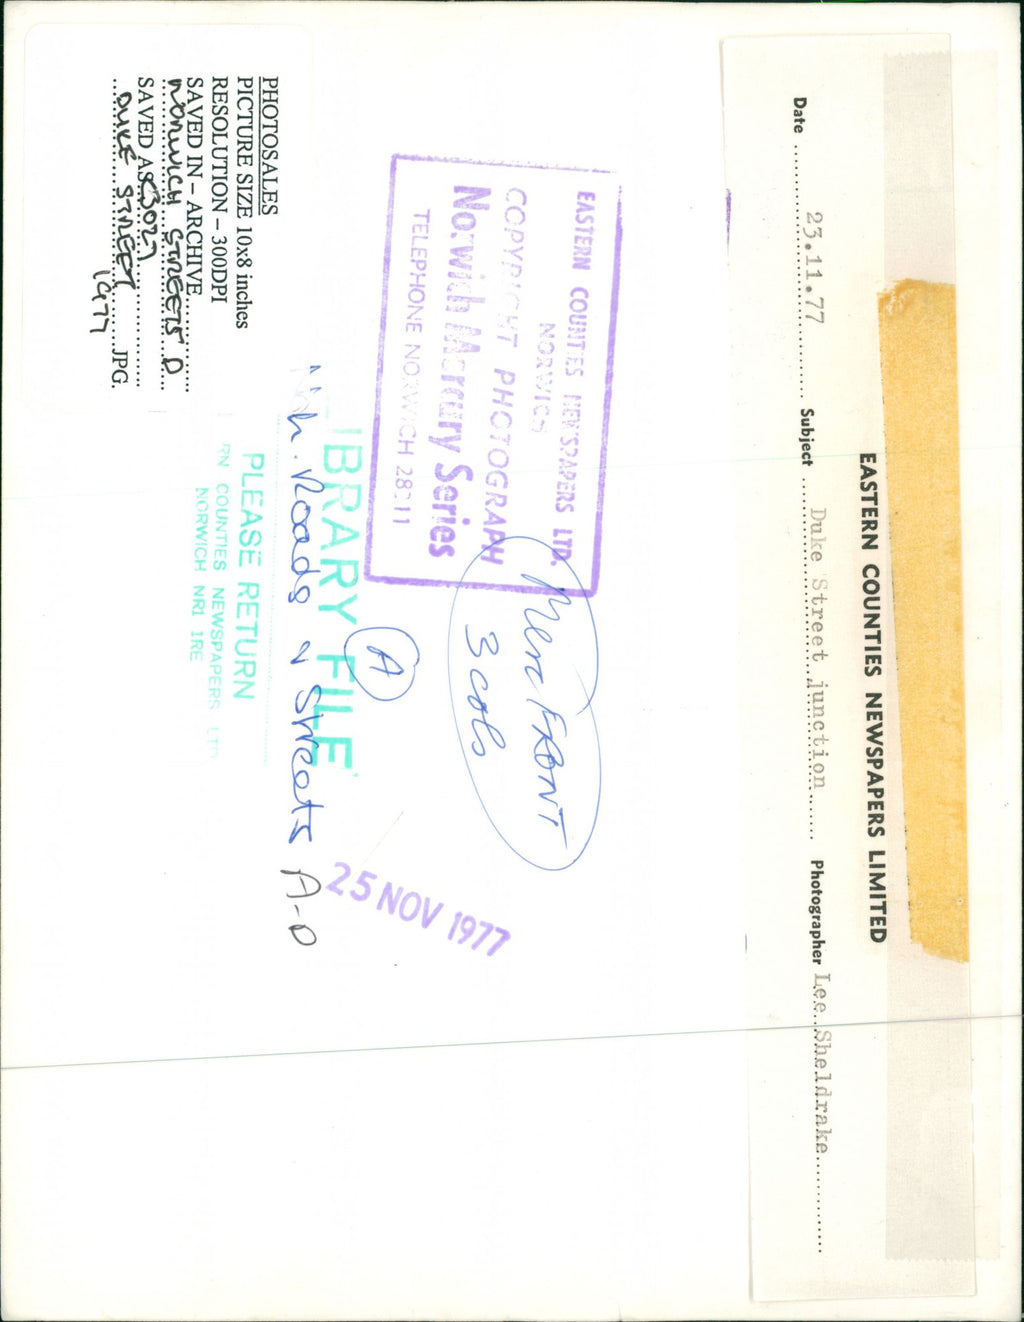 EASTERN COUNTIES NEWSPAPERS LIMITED
Date 23.11.77 Subject Duke Street junction Photographer Lee Sheldrake
EASTERN COUNTIES NEWSPAPERS LTD.
NORWICH
COPYRIGHT PHOTOGRAPH
Norwich Mercury Series
TELEPHONE NORWICH 28311
Merc FRONT
3 cols
25 NOV 1977
A
LIBRARY FILE
Nch. Roads & Streets A-D
PLEASE RETURN
RN COUNTIES NEWSPAPERS LTD
NORWICH NR1 1RE
PHOTOSALES
PICTURE SIZE 10x8 inches
RESOLUTION – 300DPI
SAVED IN – ARCHIVE
NORWICH STREETS D
SAVED AS
DUKE STREET JPG.
1977